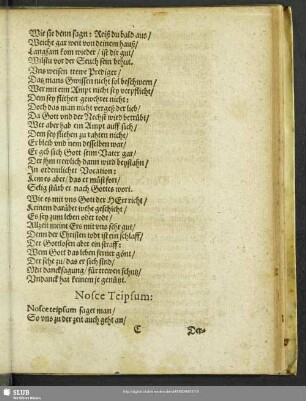 Wie sie denn sagn: Reiß du bald aus/
Weicht gar weit von deinem hauß/
Langsam kom wieder/ ist dir gut/
Wilstu vor der Seuch sein behut.
Uns weisen trewe Prediger/
Das mans Gwissen nicht sol beschwern/
Wer mit eim Ampt nicht sey verpflicht/
Dem sey fliehen gewehret nicht:
Doch das man nicht vergeß der lieb/
Da Gott und der Nechst wird betrübt/
Wer aber hab ein Ampt auff sich/
Dem sey fliehen zu rahten nicht/
Er bleib und nem desselben war/
Er geb sich Gott seim Vater gar/
Der ihm trewlich dann wird beystahn/
In ordenlicher Vocation:
Kem es aber/ das er müst fort/
Selig stürb er nach Gottes wort.
Wie es mit uns Gott der HErr richt/
Keinem darüber wehe geschicht/
Es sey zum leben oder todt/
Allzeit meint Ers mit uns sehr gut/
Denn der Christen todt ist ein schlaff/
Der Gottlosen aber ein straff:
Wem Gott das leben ferner gönt/
Der sehe zu/ das er sich find/
Mit dancksagung/ für trewen schutz/
Undanck hat keinem je genützt.
Nosce Teipsum:
Nosce teipsum saget man/
So uns zu der zeit auch geht an/
C Der-
SLUB